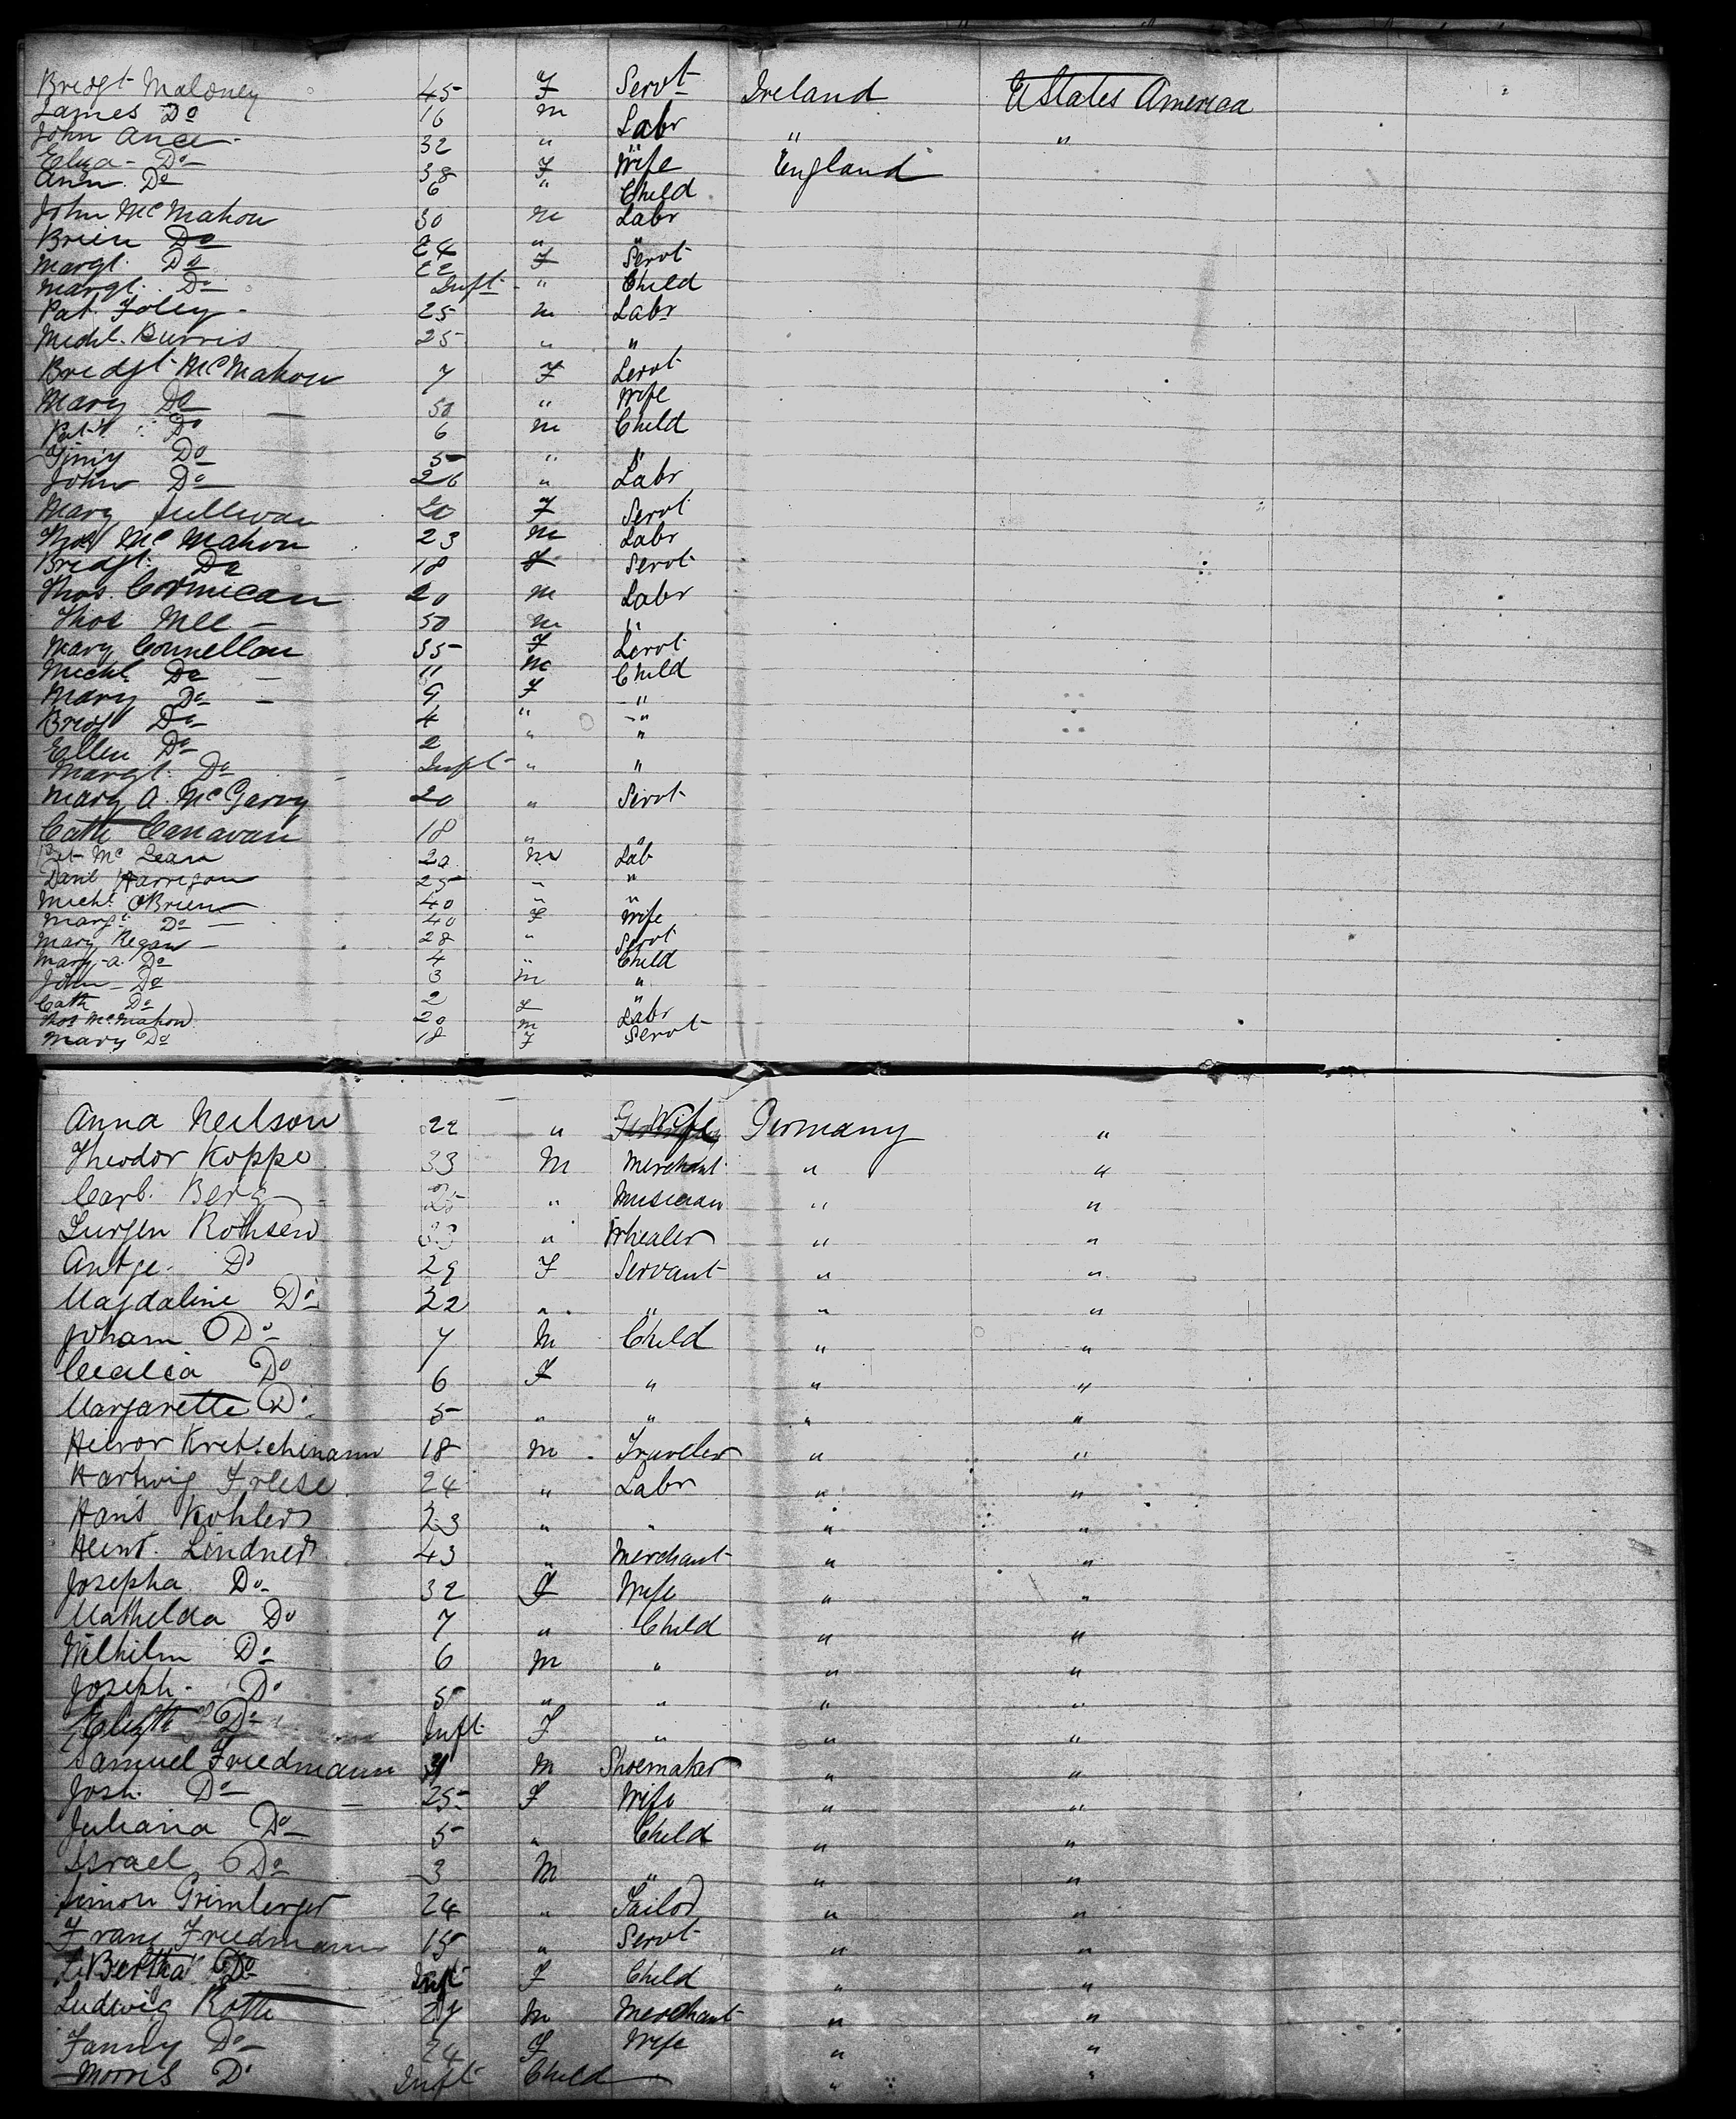 Bredgt Maloney 45 F Servt Ireland U States America
James Do 16 m Labr
John Ance 32 " " " "
Eliza Do 38 F Wife England
Ann Do 6 " Child
John McMahon 30 m Labr
Brien Do 24 " "
Margt. Do 22 F Servt
Margt. Do Inft " Child
Pat. Foley 25 m Labr
Michl. Burris 25 " "
Bredgt McMahon 7 F Servt
Mary Do 50 " Wife
Patk Do 6 m Child
Do 5 " "
John Do 26 " Labr
Mary Sullivan 20 F Servt
Thos McMahon 23 m Labr
Bredgt. Do 18 F Servt
Thos. Cormican 20 m Labr
Thos Mee 50 m "
Mary Connellan 35 F Servt
Michl. Do 11 m Child
Mary Do 9 F "
Bredgt Do 4 " "
Ellen Do 2 " "
Margt. Do Inft " "
Mary A. McGarry 20 " Servt
Cath Canavan 18 "
Pat McLean 20 m Lab
Danl Harrigan 25 " "
Michl. OBrien 40 " "
Margt. Do 40 F Wife
Mary Regan 28 " Servt
Mary A. Do 4 " Child
John Do 3 m "
Cath Do 2 F "
Thos McMahon 20 m Labr
Mary Do 18 F Servt
Anna Neilson 22 " Wife Germany "
Theodor Koppe 33 M Merchant " "
Carl. Berg " Musician " "
Jurgen Rohsen 33 " " "
Antje Do 29 F Servant " "
Magdaline Do 22 " " " "
Joham Do 7 M Child " "
Cecelia Do 6 F " " "
Margarette Do 5 " " " "
Kretschmann 18 m Traveler " "
Hartwig Freese 24 " Labr " "
Hans Kohlers 23 " " " "
Heinr. Lindner 43 " Merchant " "
Josepha Do 32 F Wife " "
Mathelda Do 7 " Child " "
Wilhilm Do 6 M " " "
Joseph Do 5 " " " "
Elizth Do Inft F " " "
Samuel Friedmann M Shoemaker " "
Josh. Do 25 F Wife " "
Juliana Do 5 " Child " "
Israel Do 3 M " " "
Simon Grimberger 24 " Tailor " "
Franz Friedmann 15 " Servt " "
Bertha Do Inft F Child " "
Ludwig Roth 27 m Merchant " "
Fanny Do 24 F Wife " "
Morris Do Inft Child " "